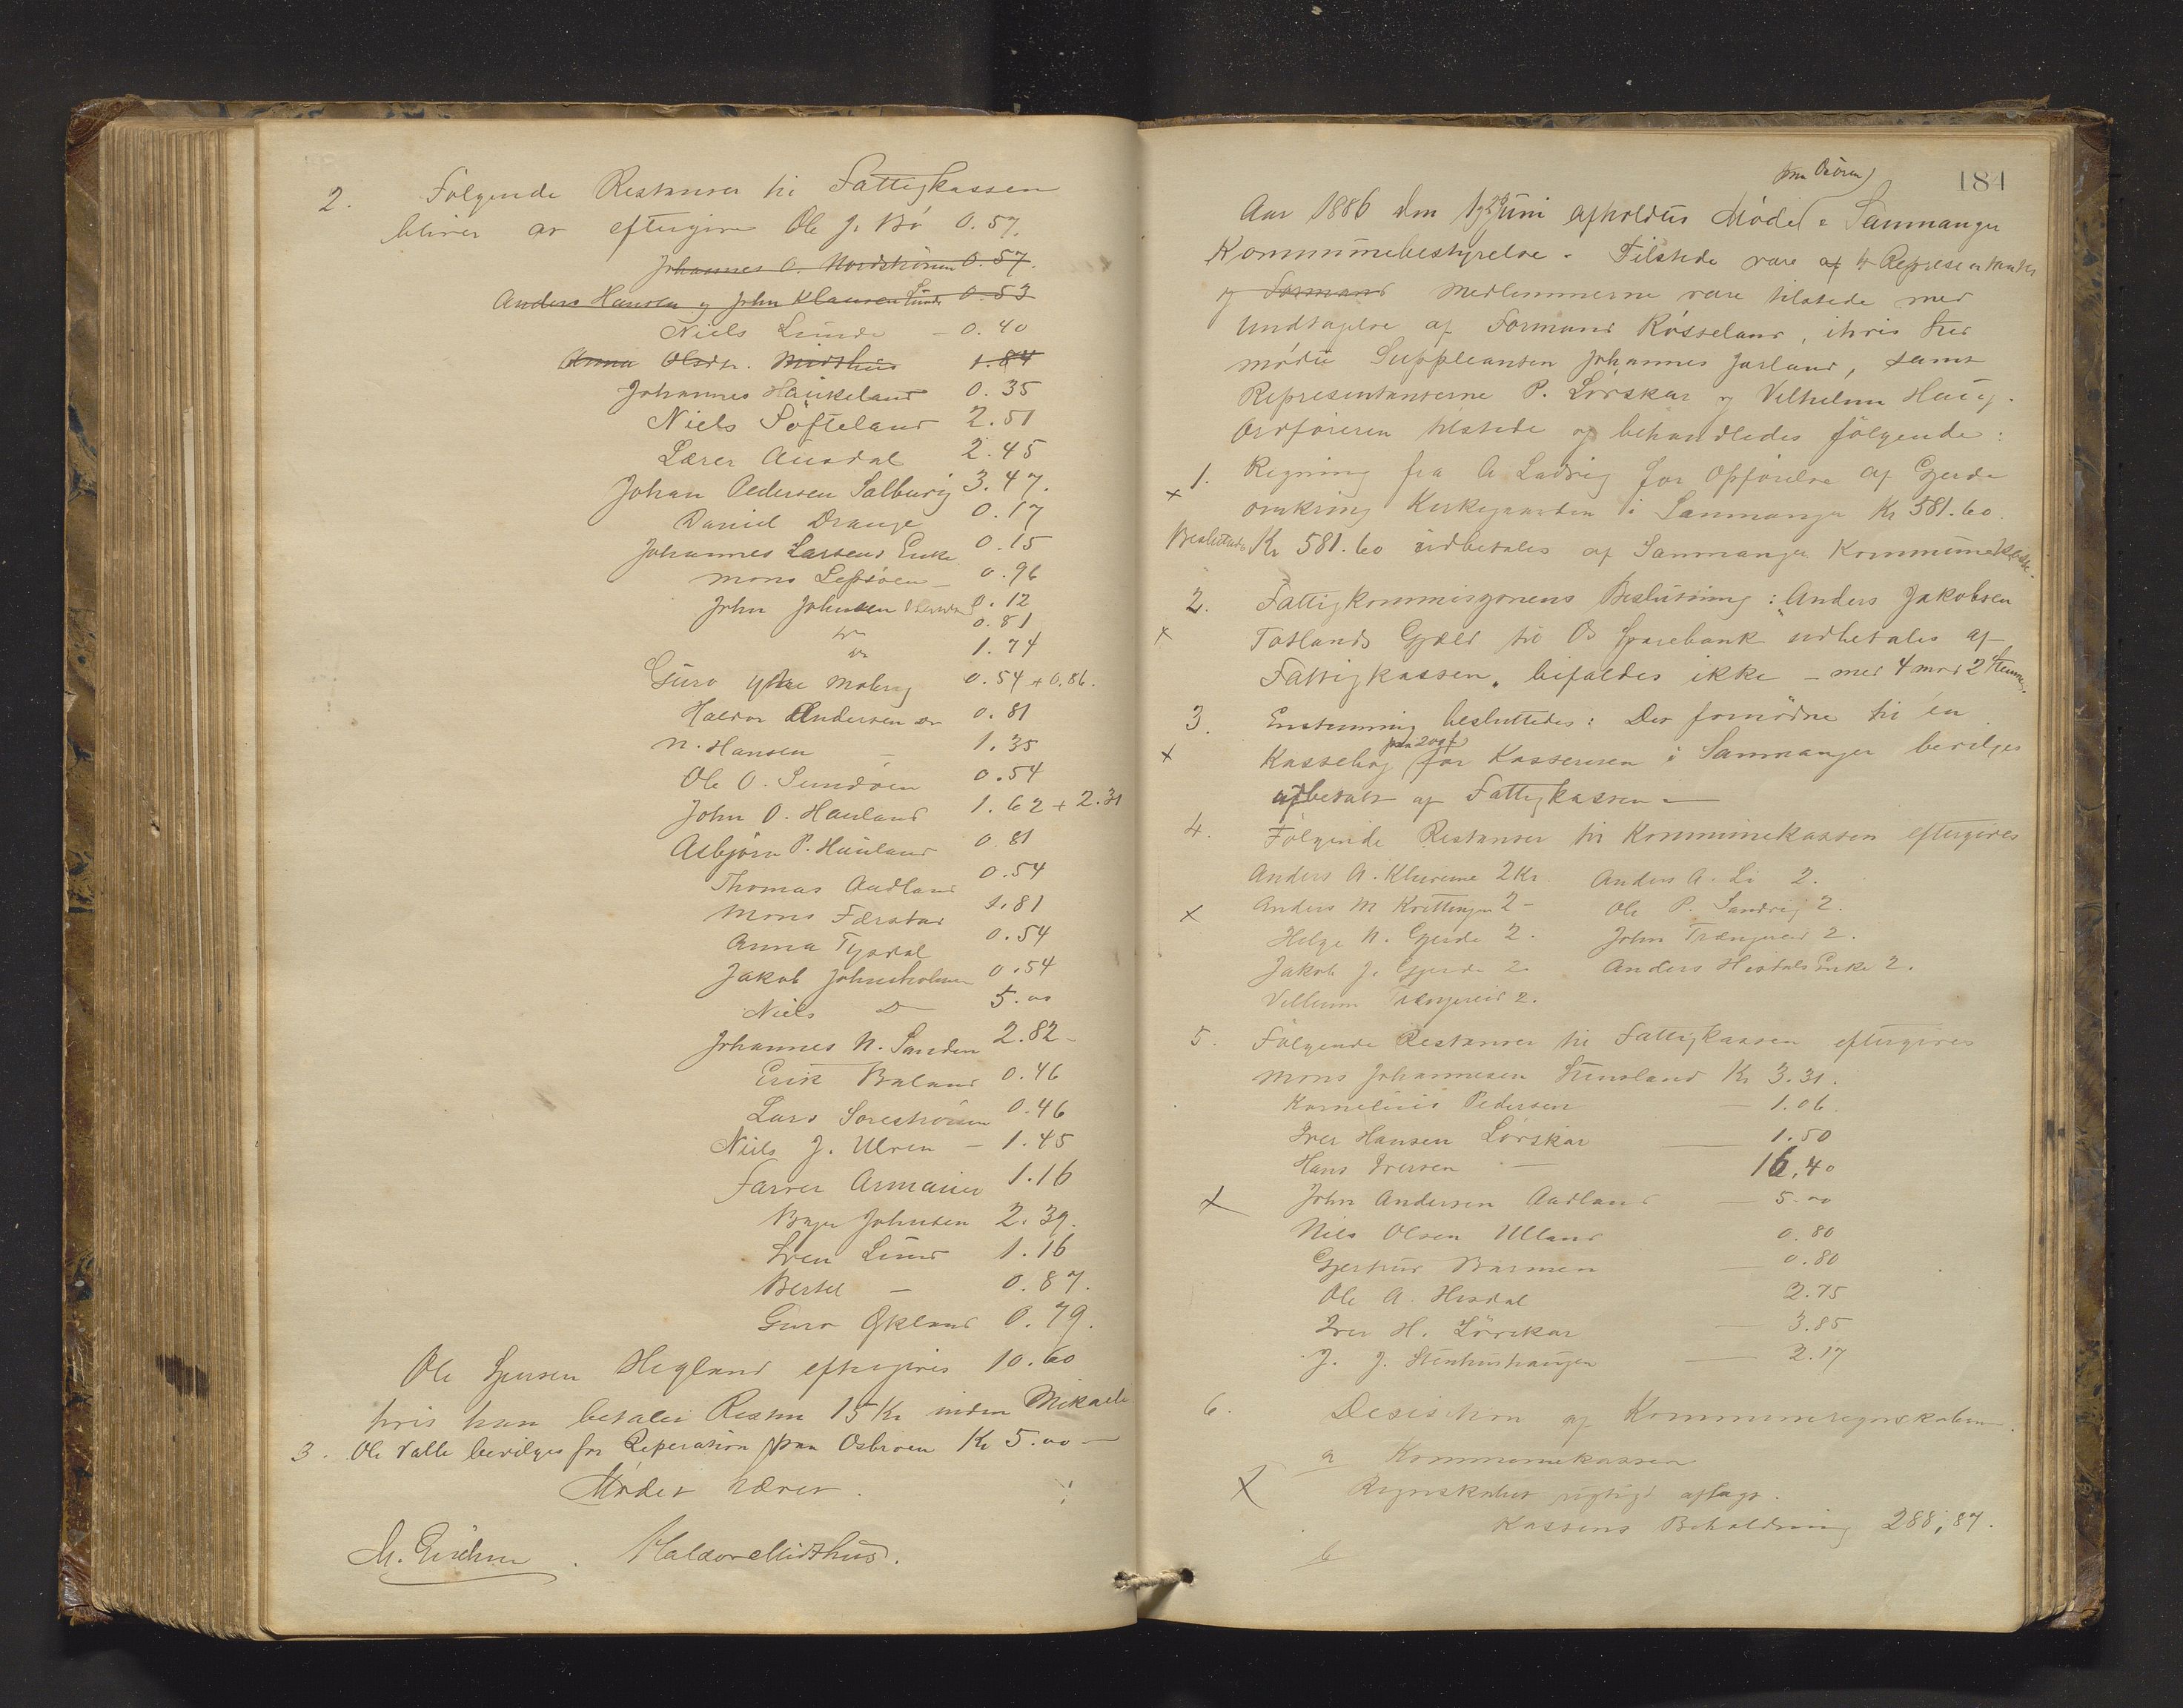 2. Følgende Restanser til Fattigkassen
bliver at eftergive Ole J. Bø 0.57.
Johannes O. Nordstrønen 0.57.
Anders Hansen og John Klausen Lunde 0.53
Niels Lunde – 0.40
Anna Olsdr. Midthus 1.84
Johannes Haukeland 0.35
Niels Søfteland 2.51
Lærer Ausdal 2.45
Johan Pedersen Salbuvig 3.47.
Daniel Drange 0.17
Johannes Larsens Enke 0.15
Mons Lepsøen – 0.96
John Johnsen 0.12
0.81
1.74
Guro ytre Moberg 0.54 + 0.86.
Haldor Andersen 0.81
N. Hansen – 1.35
Ole O. Sundøen 0.54
John O. Hauland 1.62 + 2.31
Asbjørn P. Hauland 0.81
Thomas Aadland 0.54
Mons Færstad 1.81
Anna Tysdal 0.54
Jakob Johnsholmen 0.54
Niels D 5.00
Johannes N. Sanden 2.82 –
Erik Baland 0.46
Lars Sørestrønen 0.46
Niels J. Ulven – 1.45
Farver Armauer 1.16
Johnsen 2.39.
Sven Lund 1.16
Bertel – 0.87.
Guro Økland 0.79.
Ole Jensen Hegland eftergives 10.60
hvis han betaler Resten 15 Kr inden Mikaeli
3. Ole Valle bevilges for Reperation paa Osbroen Kr 5.00 –
Mødet hævet.
M. Haldor Midthus.
184
paa Osøren
Aar 1886 den 19de Juni afholdtes Møde i Samnanger
Kommunebestyrelse. Tilstede vare af 4 Representanter
og Formand Medlemmerne vare tilstede med
Undtagelse af Formand Røsseland, ihvis Sted
mødte Suppleanten Johannes Jarland, samt
Representanterne P. Lørskar og Vilhelm Haug.
Ordføreren tilstede og behandledes følgende:
1. Regning fra A Ladvig for Opførelse af Gjerde
x omkring Kirkegaarden i Samnanger Kr 581.60.
Besluttedes Kr 581.60 udbetales af Samnanger Kommunekasse.
2. Fattigkommisjonens Beslutning: "Anders Jakobsen
x Totlands Gjæld til Os Sparebank udbetales af
Fattigkassen" bifaldes ikke – med 4 mod 2 Stemmer.
3. Enstemmig besluttedes: Det fornødne til en
paa 200 f
x Kassebog for Kassereren i Samnanger bevilges
udbetalt af Fattigkassen –
4. Følgende Restanser til Kommunekassen eftergives
Anders A. Kleivene 2 Kr. Anders A. Li 2.
x Anders M Kvittingen 2 – Ole P. Sandvig 2.
Helge N. Gjerde 2. John Trængereid 2.
Jakob J. Gjerde 2 Anders Hisdals Enke 2.
Villum Trængereid 2.
5. Følgende Restanser til Fattigkassen eftergives
Mons Johannesen Stensland Kr 3.31.
Kornelius Pedersen – 1.06.
Iver Hansen Lørskar – 1.50
Hans Iversen – 16.40
x John Andersen Aadland – 5.00
Nils Olsen Ulland 0.80
Gjertrud Barmen – 0.80
Ole A. Hisdal 2.75
Iver H. Lørskar – 3.85
J. J. Stenhushaugen – 2.17
6. Desisition af Kommuneregnskaberne.
a Kommunekassen
x Regnskabet rigtigt aflagt.
Kassens Beholdning 288,87.
b